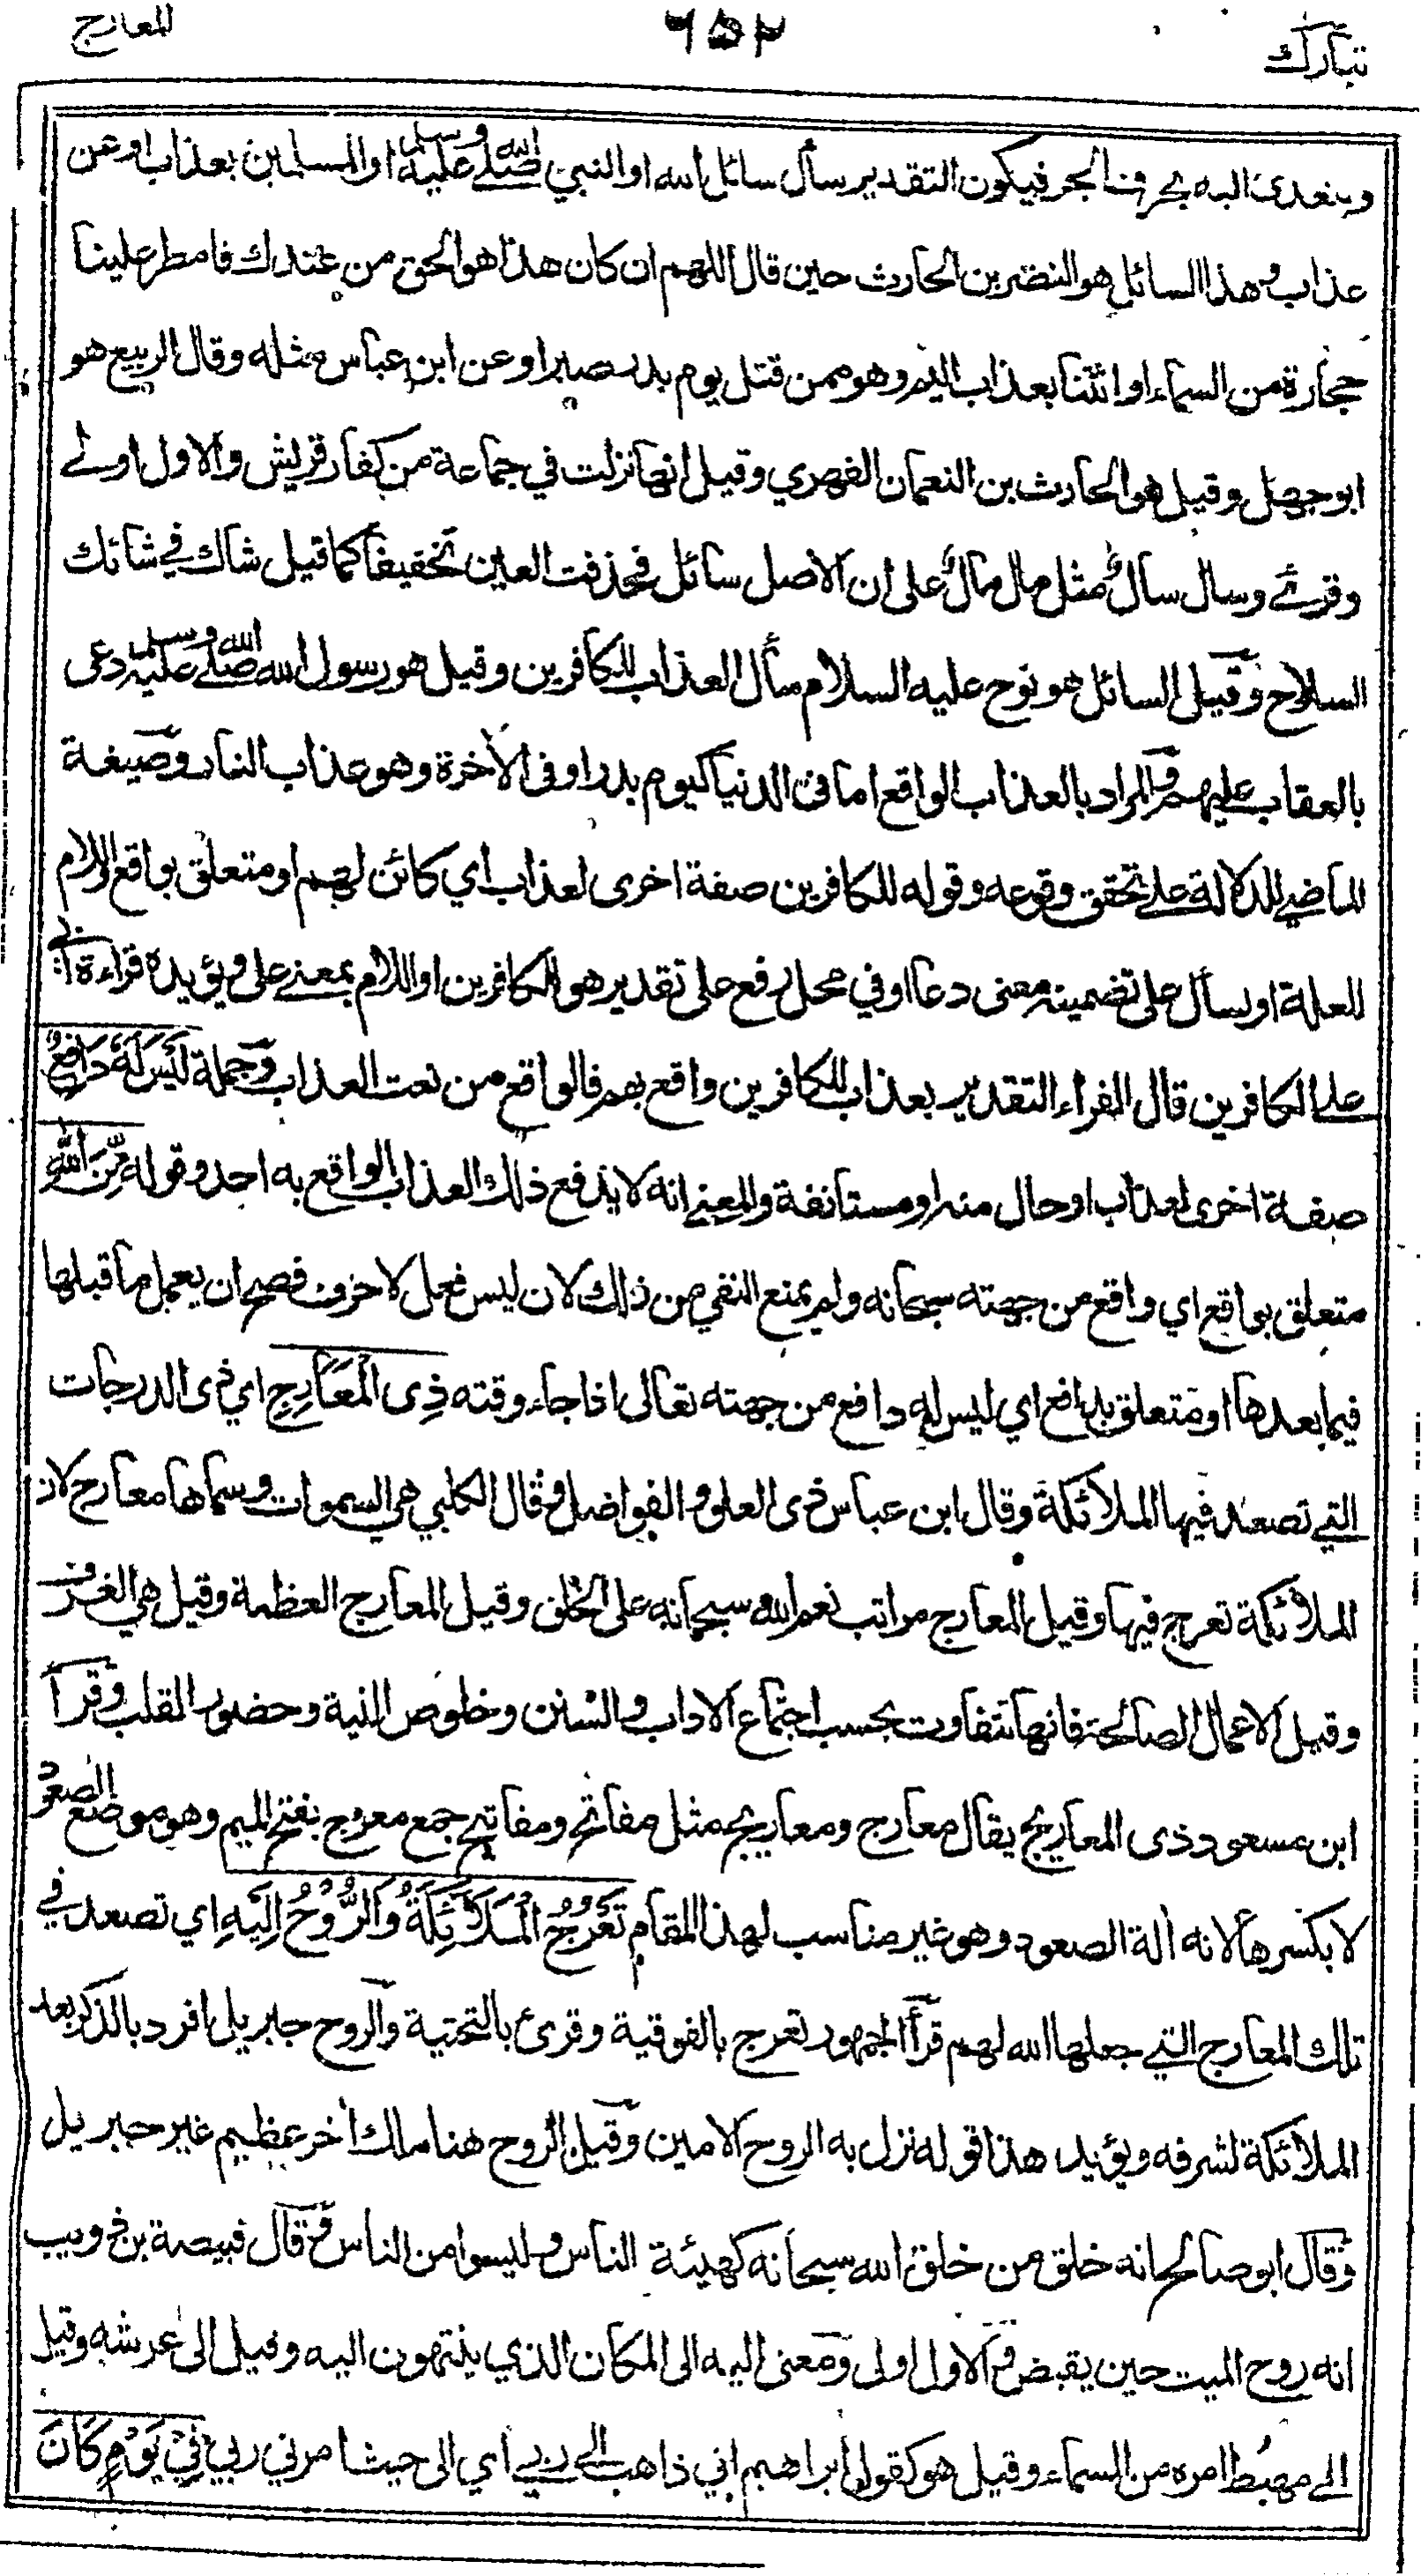 تبارك ٦٥٢ المعارج
ويتعدى اليه بحرف الجر فيكون التقدير سأل سائل الله او النبي صلى الله عليه وسلم او المسلمين بعذاب او عن
عذاب وهذا السائل هو النضر بن الحارث حين قال اللهم ان كان هذا هو الحق من عندك فامطر علينا
حجارة من السماء او ائتنا بعذاب اليم وهو ممن قتل يوم بدر صبرا وعن ابن عباس مثله وقال الربيع هو
ابو جهل وقيل هو الحارث بن النعمان الفهري وقيل انها نزلت في جماعة من كفار قريش والاول اولى
وقرئ وسال سال مثل مال مال على ان الاصل سائل فحذفت العين تخفيفا كما قيل شاك في شائك
السلاح وقيل السائل هو نوح عليه السلام سأل العذاب للكافرين وقيل هو رسول الله صلى الله عليه وسلم دعى
بالعقاب عليهم والمراد بالعذاب الواقع اما في الدنيا كيوم بدر او في الأخرة وهو عذاب النار وصيغة
الماضي للدلالة على تحقق وقوعه وقوله للكافرين صفة اخرى لعذاب اي كائن لهم او متعلق بواقع واللام
للعلة او لسأل على تضمينه معنى دعا او في محل رفع على تقدير هو للكافرين او اللام بمعنى على ويؤيده قراءة أبي
على الكافرين قال الفراء التقدير بعذاب للكافرين واقع بهم فالواقع من نعت العذاب وجملة لَيْسَ لَهُ دَافِعٌ
صفة اخرى لعذاب او حال منه او مستانفة والمعنى انه لا يدفع ذلك العذاب الواقع به احد وقوله مِّنَ اللهِ
متعلق بواقع اي واقع من جهته سبحانه ولم يمنع النفي من ذلك لان ليس فعل لا حرف فصح ان يعمل ما قبلها
فيما بعدها او متعلق بدافع اي ليس له دافع من جهته تعالى اذا جاء وقته ذِى الْمَعَارِجِ اي ذى الدرجات
التي تصعد فيها الملائكة وقال ابن عباس ذى العلو والفواضل وقال الكلبي هي السموات وسماها معارج لان
الملائكة تعرج فيها وقيل المعارج مراتب نعم الله سبحانه على الخلق وقيل المعارج العظمة وقيل هي الغرف
وقيل الاعمال الصالحة فانها تتفاوت بحسب اجتماع الاداب والسنن وخلوص النية وحضور القلب وقرأ
ابن مسعود ذى المعاريج يقال معارج ومعاريج مثل مفاتح ومفاتيح جمع معرج بفتح الميم وهو موضع الصعود
لا بكسرها لانه الة الصعود وهو غير مناسب لهذا المقام تَعْرُجُ الْمَلَائِكَةُ وَالرُّوْحُ اِلَيْهِ اي تصعد في
تلك المعارج التي جعلها الله لهم قرأ الجمهور تعرج بالفوقية وقرئ بالتحتية والروح جبريل افرد بالذكر بعد
الملائكة لشرفه ويؤيد هذا قوله نزل به الروح الامين وقيل الروح هنا ملك أخر عظيم غير جبريل
وقال ابو صالح انه خلق من خلق الله سبحانه كهيئة الناس وليسوا من الناس وقال قبيصة بن ذويب
انه روح الميت حين يقبض والاول اولى ومعنى اليه الى المكان الذي ينتهون اليه وقيل الى عرشه وقيل
الى مهبط امره من السماء وقيل هو كقول ابراهيم اني ذاهب الى ربي اي الى حيث امرني ربي فِيْ يَوْمٍ كَانَ